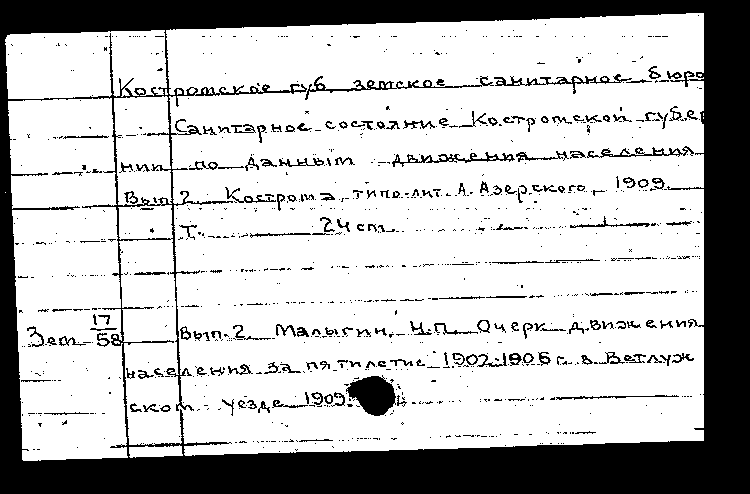 Костромское губ. земское санитарное бюро
Санитарное состояние Костромской губер
нии по данным движения населения
Вып. 2. Кострома, типо-лит. А. Азерского, 1909.
Т. 24 cm.
17
Зем 58 Вып. 2. Малыгин, Н.П. Очерк движения
населения за пятилетие 1902-1906 г. в Ветлуж
ском уезде 1909.